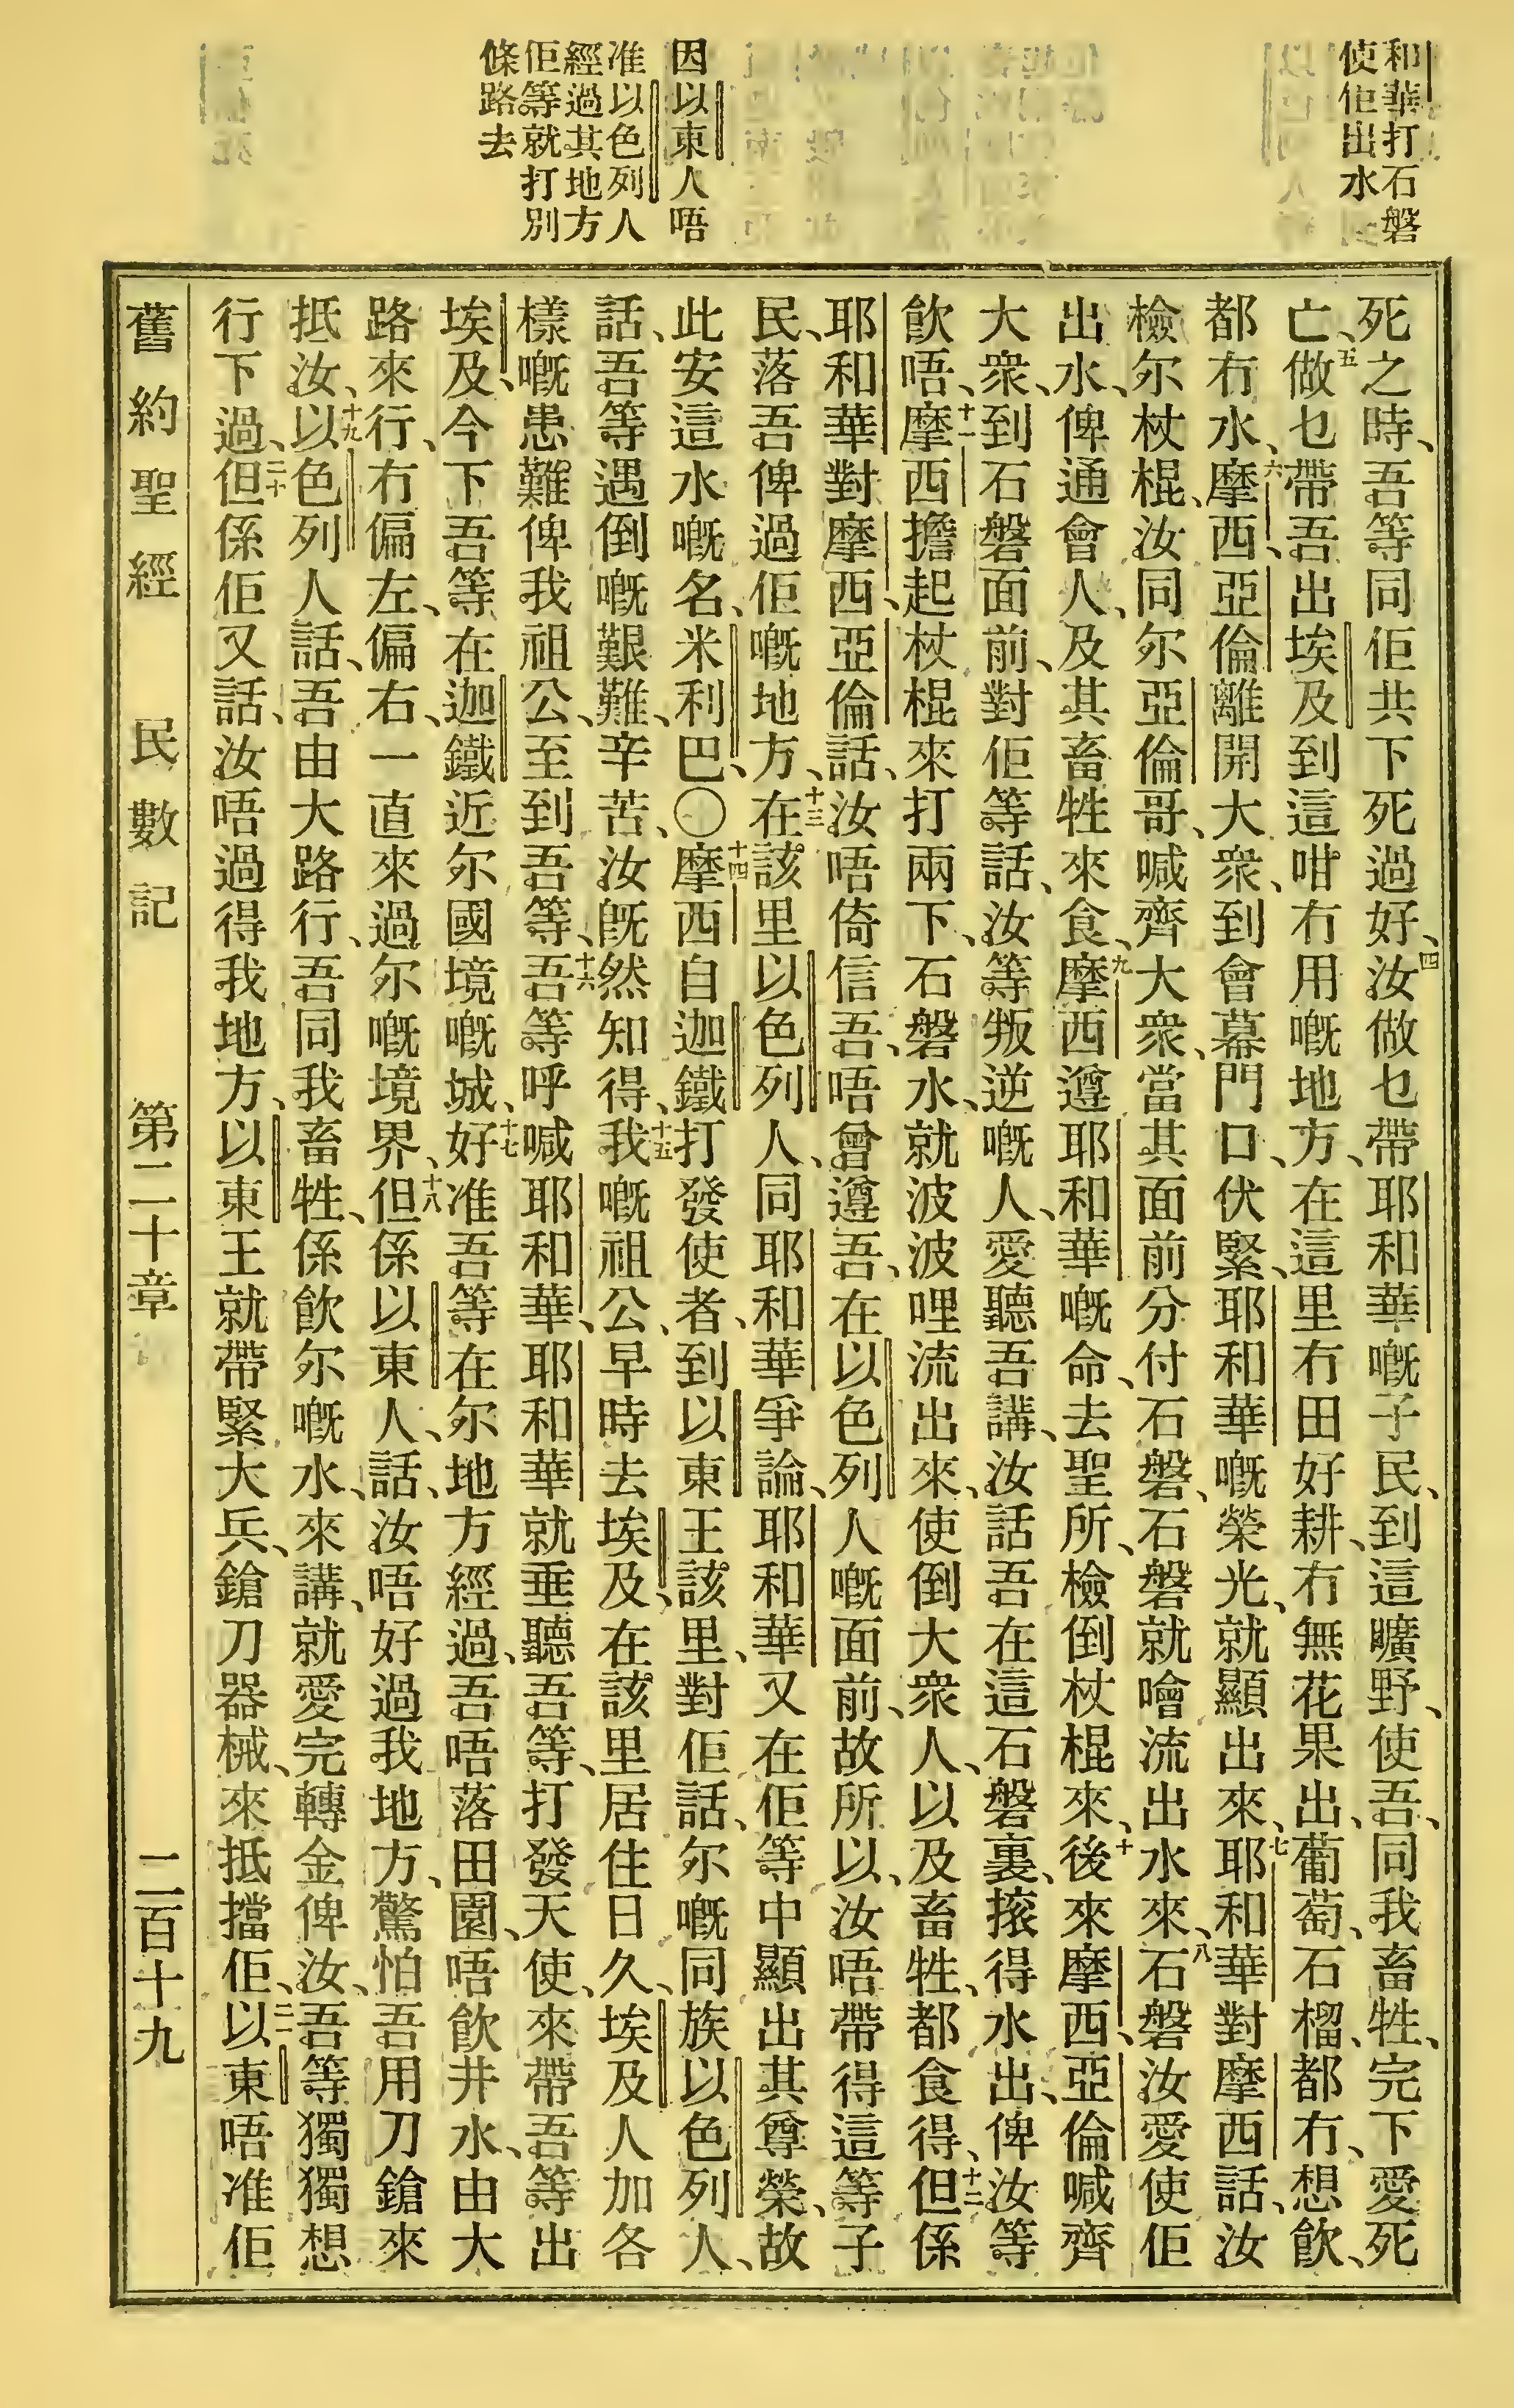 和華打石磐
使佢出水
因以東人唔
准以色列人
經過其地方
佢等就打別
條路去
死之時、吾等同佢共下死過好、四汝做乜帶耶和華嘅子民、到這曠野、使吾、同我畜牲、完下愛死
亡、五做乜帶吾出埃及到這咁冇用嘅地方、在這里冇田好耕、冇無花果出、葡萄、石榴、都冇、想飲、
都冇水、六摩西、亞倫離開大衆、到會幕門口、伏緊、耶和華嘅榮光、就顯出來、七耶和華對摩西話、汝
檢尔杖棍、汝同尔亞倫哥、喊齊大衆、當其面前分付石磐、石磐就噲流出水來、八石磐汝愛使佢
出水、俾通會人、及其畜牲來食、九摩西遵耶和華嘅命、去聖所、檢倒杖棍來、十後來摩西、亞倫喊齊
大衆、到石磐面前、對佢等話、汝等叛逆嘅人、愛聽吾講、汝話吾在這石磐裏、揼得水出、俾汝等
飲唔、十一摩西擔起杖棍來打兩下、石磐水、就波波哩流出來、使倒大衆人、以及畜牲、都食得、十二但係
耶和華對摩西、亞倫話、汝唔倚信吾、唔曾遵吾、在以色列人嘅面前、故所以、汝唔帶得這等子
民、落吾俾過佢嘅地方、十三在該里以色列人、同耶和華爭論、耶和華又在佢等中顯出其尊榮、故
此安這水嘅名、米利巴、〇十四摩西自迦鐵打發使者、到以東王該里、對佢話、尔嘅同族以色列人、
話、吾等遇倒嘅艱難、辛苦、汝旣然知得、十五我嘅祖公、早時去埃及、在該里居住日久、埃及人加各
樣嘅患難俾我祖公、至到吾等、十六吾等呼喊耶和華、耶和華就垂聽吾等、打發天使、來帶吾等出
埃及、今下吾等在迦鐵近尔國境嘅城、十七好准吾等在尔地方經過、吾唔落田園、唔飲井水、由大
路來行、冇偏左、偏右、一直來過尔嘅境界、十八但係以東人、話、汝唔好過我地方、驚怕吾用刀鎗來
抵汝、十九以色列人話、吾由大路行、吾同我畜牲、係飲尔嘅水、來講、就愛完轉金俾汝、吾等獨獨想
行下過、二十但係佢又話、汝唔過得我地方、以東王就帶緊大兵、鎗刀器械、來抵擋佢、二一以東唔准佢
舊約聖經　民數記　第二十章　二百十九